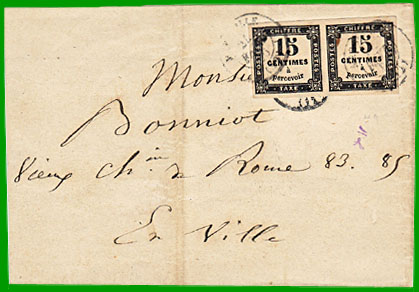 CHIFFRE CHIFFRE
POSTES 15 POSTES POSTES 15 POSTES
CENTIMES CENTIMES
à à
Percevoir Percevoir
TAXE TAXE
Monsie
Bonniot
Vieux Ch.in de Rome 83. 85
En Ville